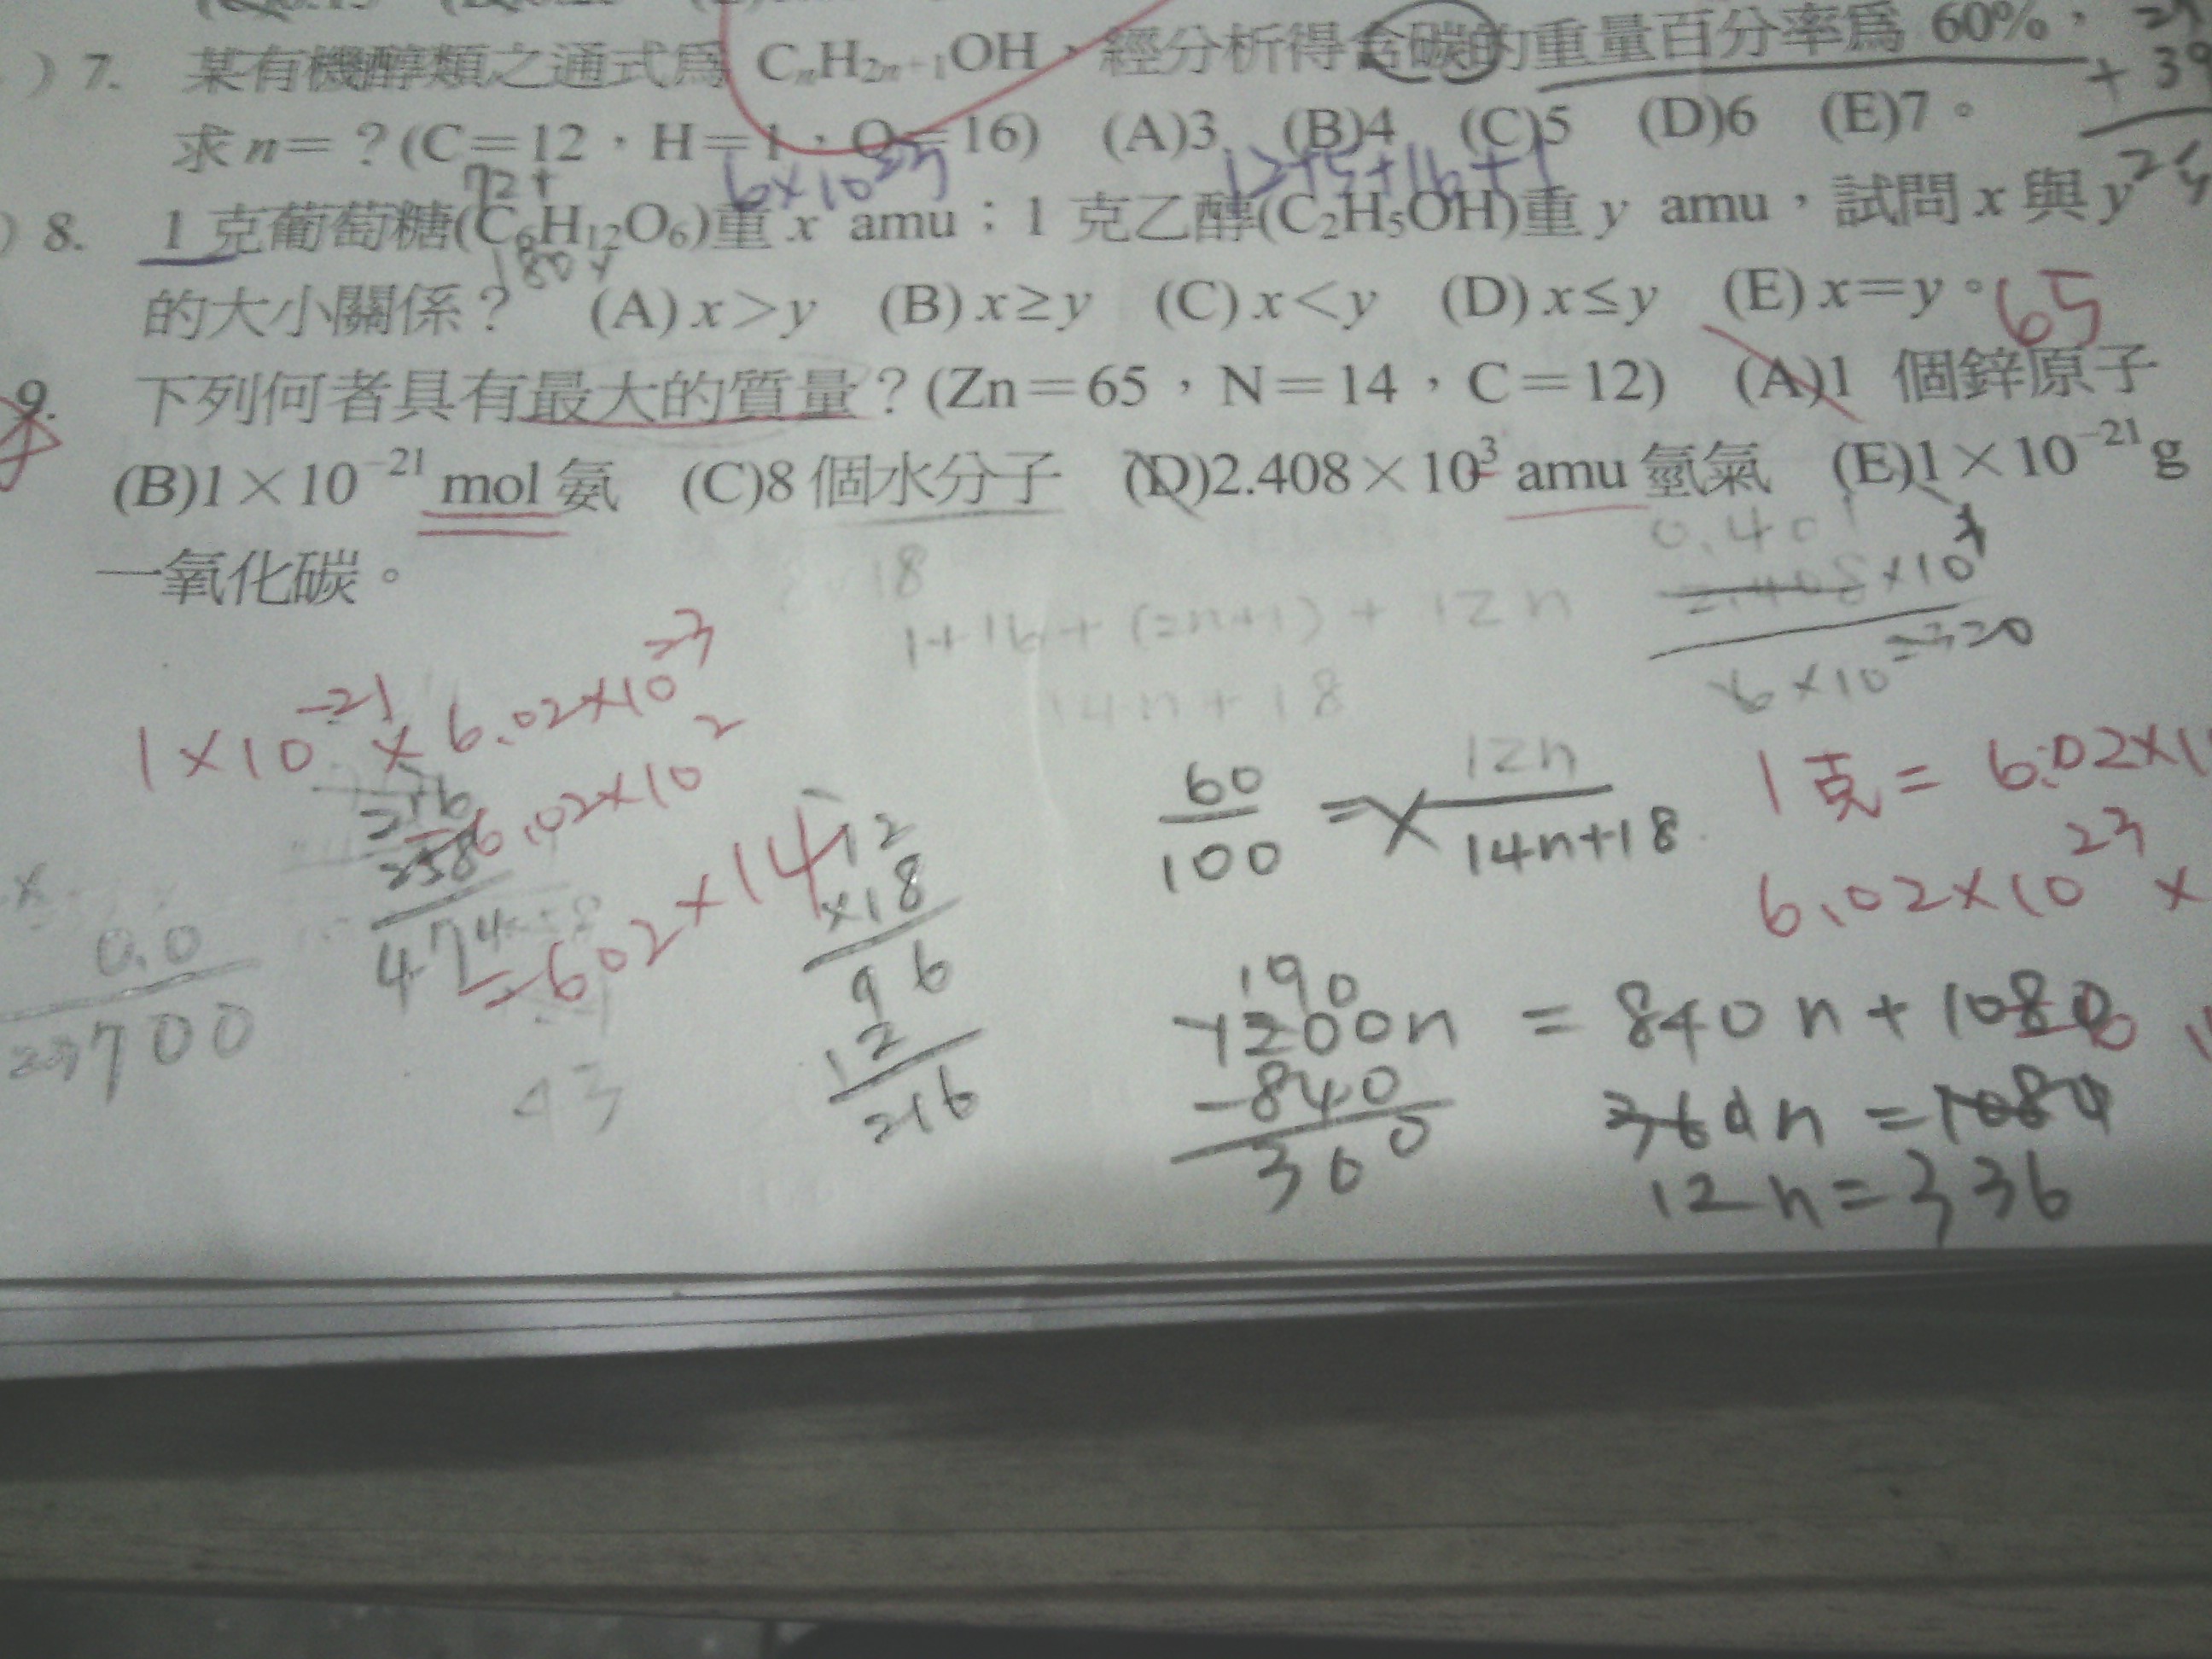 7. 某有機醇類之通式為 CₙH₂ₙ₊₁OH，經分析得含碳的重量百分率為 60%，
求n＝？(C＝12，H＝1，O＝16) (A)3 (B)4 (C)5 (D)6 (E)7。
+ 39
72+
6×10²³
12+5+16+1
8. 1 克葡萄糖(C₆H₁₂O₆)重 x amu；1 克乙醇(C₂H₅OH)重 y amu，試問 x 與 y
180
的大小關係？ (A) x＞y (B) x≥y (C) x＜y (D) x≤y (E) x＝y。
65
9. 下列何者具有最大的質量？(Zn＝65，N＝14，C＝12) (A)1 個鋅原子
(B)1×10⁻²¹ mol 氨 (C)8 個水分子 (D)2.408×10³ amu 氫氣 (E)1×10⁻²¹ g
一氧化碳。
18
1+16+(2n+1)+12n
14n+18
1×10⁻²¹×6.02×10²³
6.02×10²
=602×14
216
258
474
12
×18
96
12
216
0.0
700
43
60/100 = 12n/14n+18
1克= 6.02×1
6.02×10²³ ×
1200n = 840n+1080
-840
360
360n=1080
12n=336